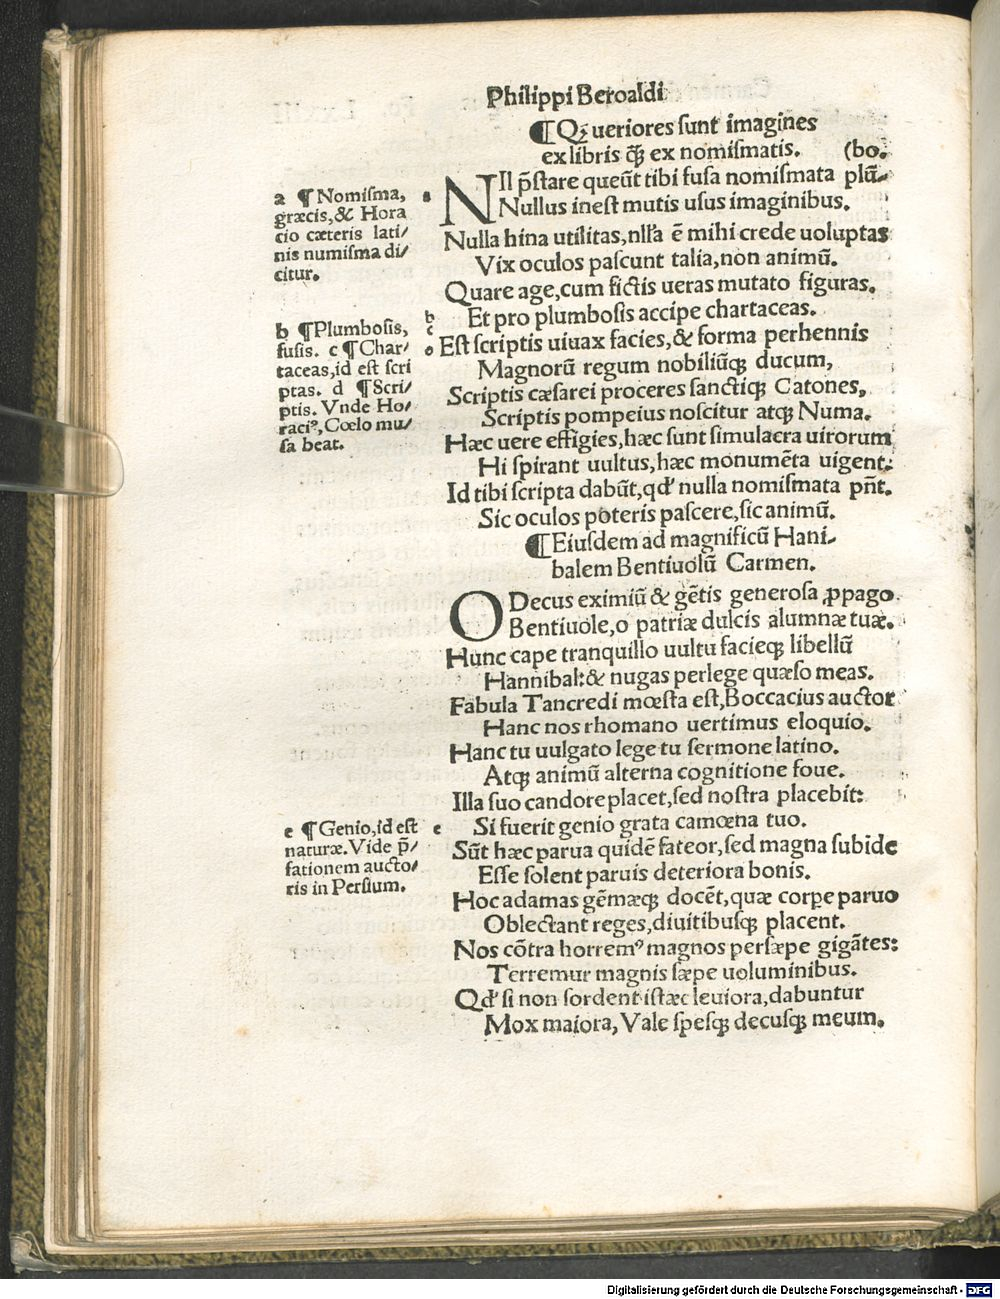 Philippi Beroaldi
¶ Qꝫ ueriores sunt imagines
ex libris q̃ꝫ ex nomismatis. (bo.
NIl p̃stare queũt tibi fusa nomismata plũ-
Nullus inest mutis usus imaginibus.
Nulla hina utilitas, nlľa ẽ mihi crede uoluptas
Vix oculos pascunt talia, non animũ.
Quare age, cum fictis ueras mutato figuras.
Et pro plumbosis accipe chartaceas.
Est scriptis uiuax facies, & forma perhennis
Magnorũ regum nobiliũqꝫ ducum,
Scriptis cæsarei proceres sanctiqꝫ Catones,
Scriptis pompeius noscitur atqꝫ Numa.
Hæc uere effigies, hæc sunt simulacra uirorum
Hi spirant uultus, hæc monumẽta uigent:
Id tibi scripta dabũt, qđ nulla nomismata pñt.
Sic oculos poteris pascere, sic animũ.
¶ Eiusdem ad magnificũ Hani-
balem Bentiuolũ Carmen.
O Decus eximiũ & gẽtis generosa ꝓpago
Bentiuole, o patriæ dulcis alumnæ tuæ.
Hunc cape tranquillo uultu facieqꝫ libellũ
Hannibal: & nugas perlege quæso meas.
Fabula Tancredi mœsta est, Boccacius auctor
Hanc nos rhomano uertimus eloquio.
Hanc tu uulgato lege tu sermone latino.
Atqꝫ animũ alterna cognitione foue.
Illa suo candore placet, sed nostra placebit:
Si fuerit genio grata camœna tuo.
Sũt hæc parua quidẽ fateor, sed magna subide
Esse solent paruis deteriora bonis.
Hoc adamas gẽmæqꝫ docẽt, quæ corpe paruo
Oblectant reges, diuitibusqꝫ placent.
Nos cõtra horremꝰ magnos persæpe gigãtes:
Terremur magnis sæpe uoluminibus.
Qđ si non sordent istæc leuiora, dabuntur
Mox maiora, Vale spesqꝫ decusqꝫ meum.
a ¶ Nomisma,
græcis, & Hora
cio cæteris lati/
nis numisma di/
citur.
b ¶ Plumbosis,
fusis. c ¶ Char/
taceas, id est scri
ptas. d ¶ Scri/
ptis. Vnde Ho/
raciꝰ, Cœlo mu/
sa beat.
e ¶ Genio, id est
naturæ. Vide p̃/
fationem aucto/
ris in Persium.
a
b
c
e
Digitalisierung gefördert durch die Deutsche Forschungsgemeinschaft - DFG